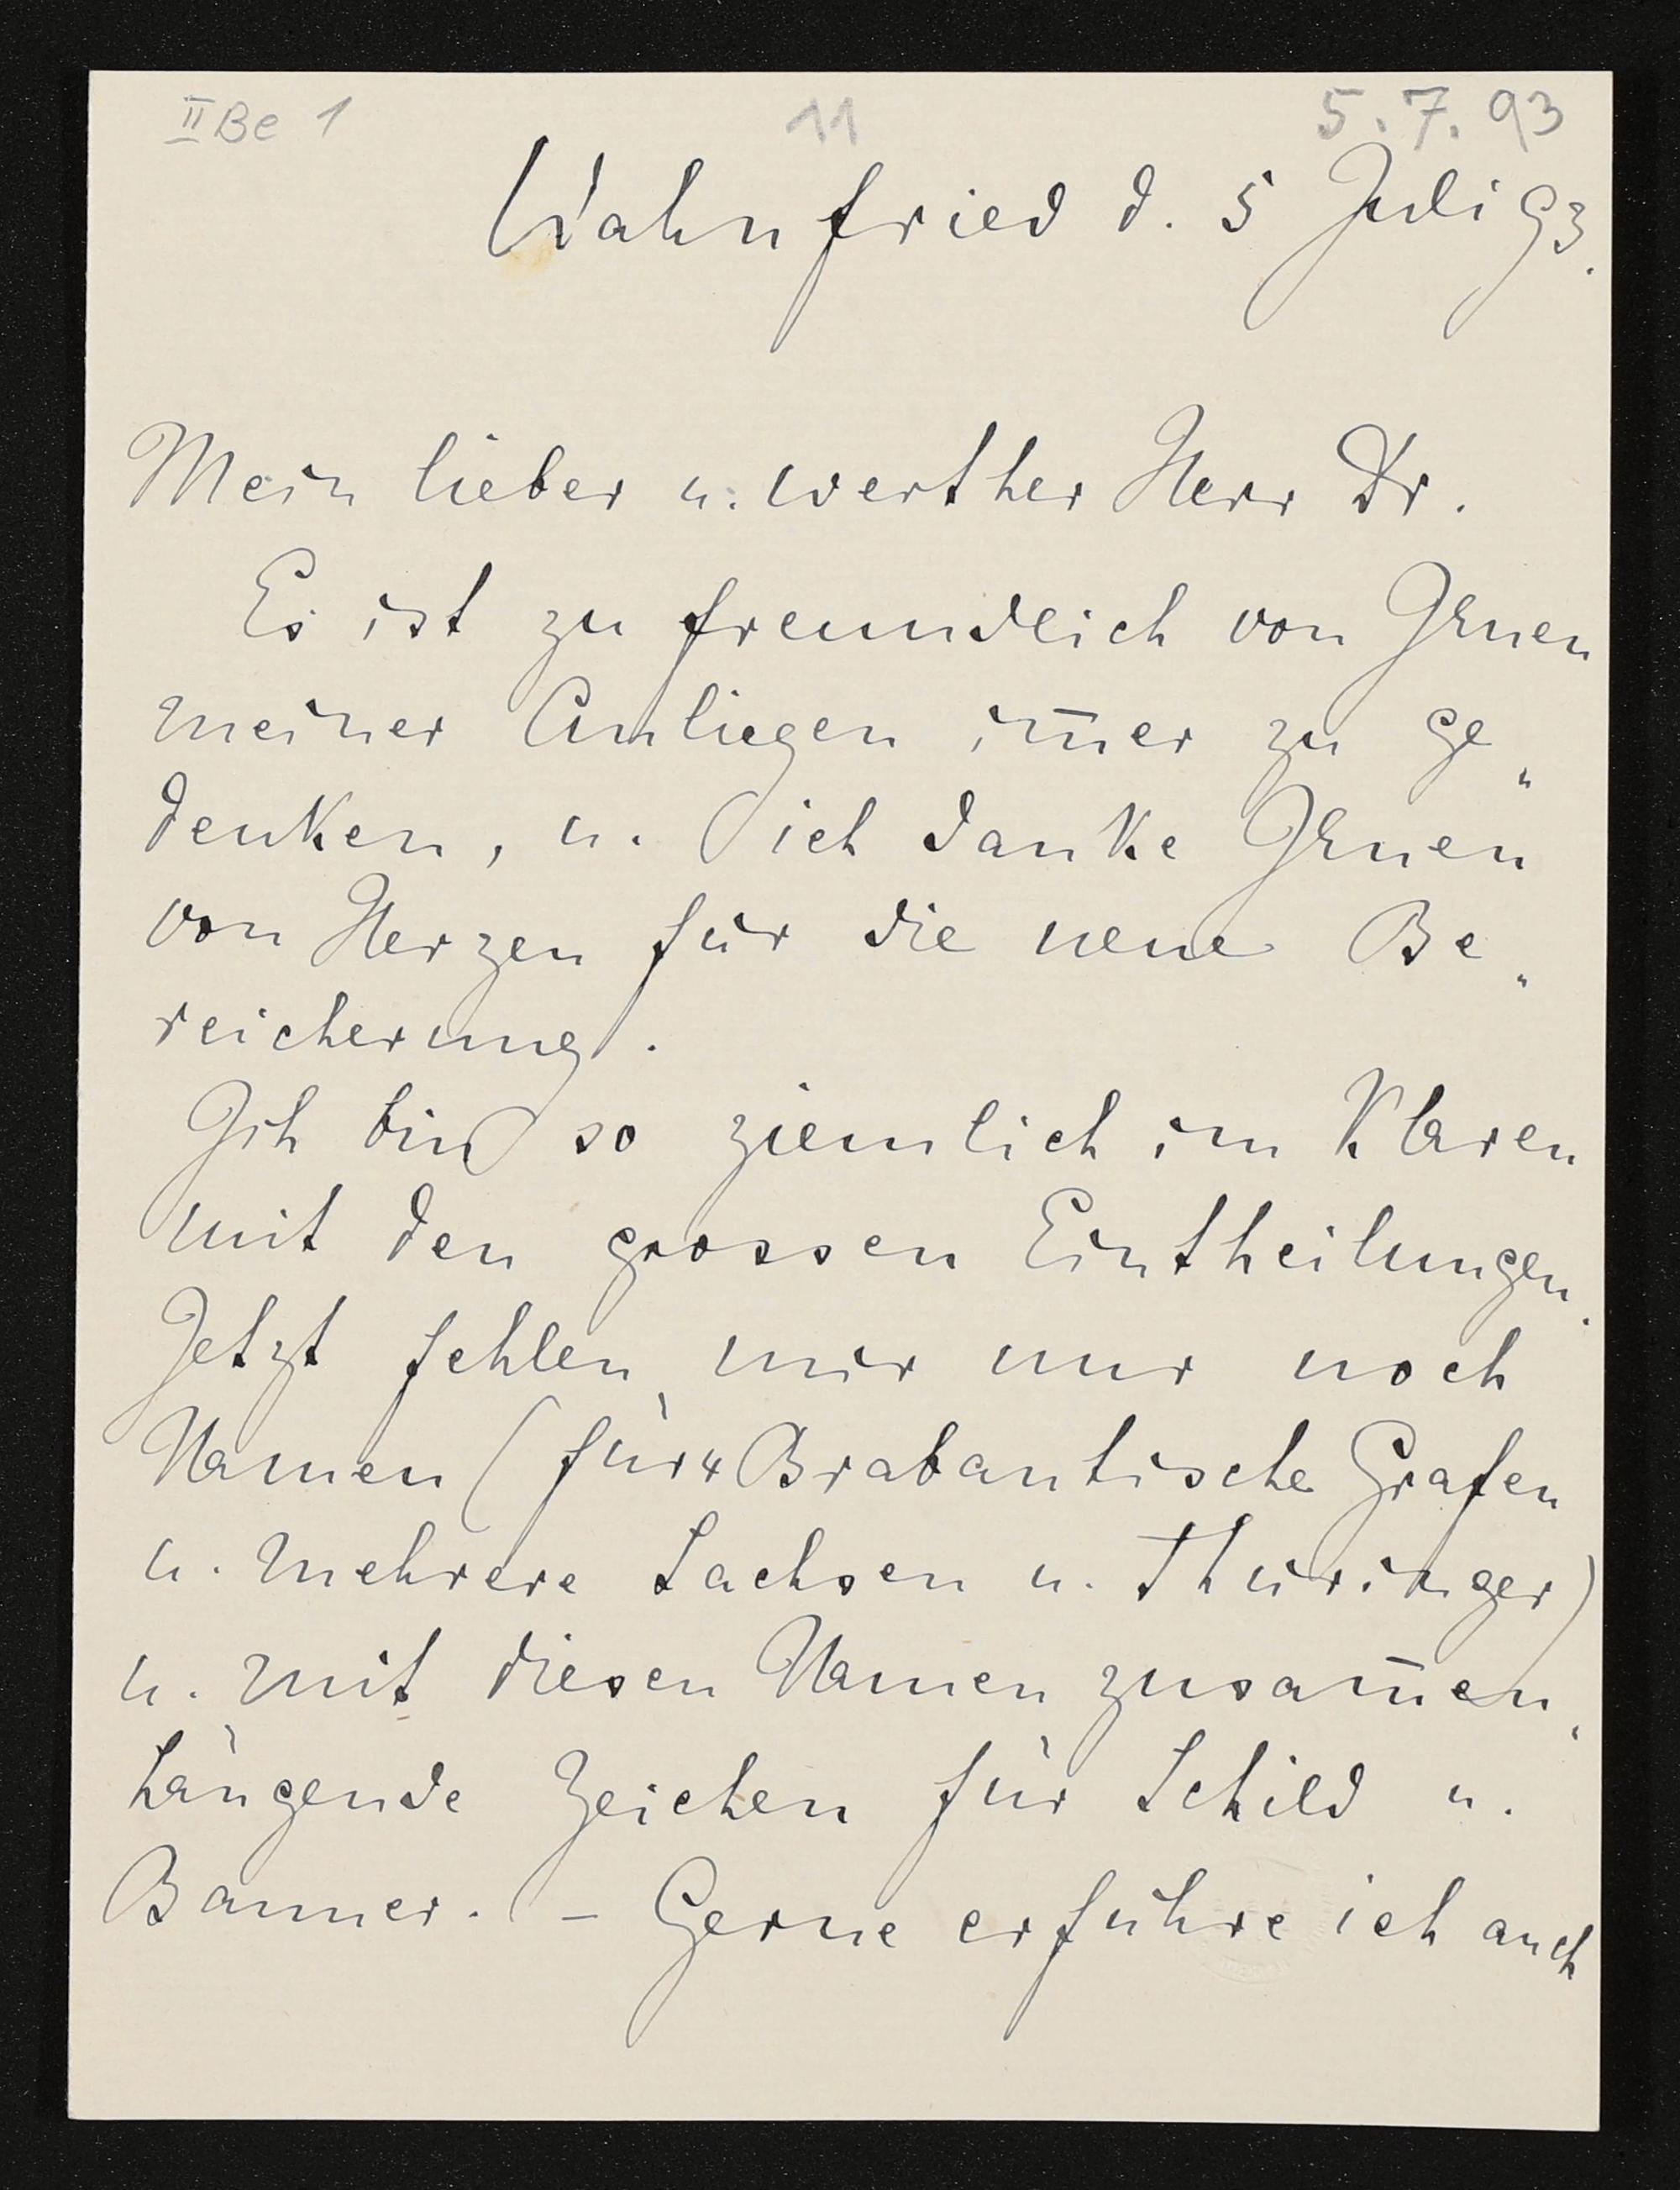 II Be 1
11
5.7.93
Wahnfried d. 5 Juli 93.
Mein lieber u. werther Herr Dr.
Es ist zu freundlich von Ihnen
meiner Anliegen im̅er zu ge„
denken, u. ich danke Ihnen
von Herzen für die neue Be„
reicherung.
Ich bin so ziemlich im Klaren
mit den grossen Eintheilungen.
Jetzt fehlen mir nur noch
Namen (für 4 Brabantische Grafen
u. mehrere Sachsen u. Thüringer)
u. mit diesen Namen zusam̅en„
hängende Zeichen für Schild u.
Banner. – Gerne erführe ich auch